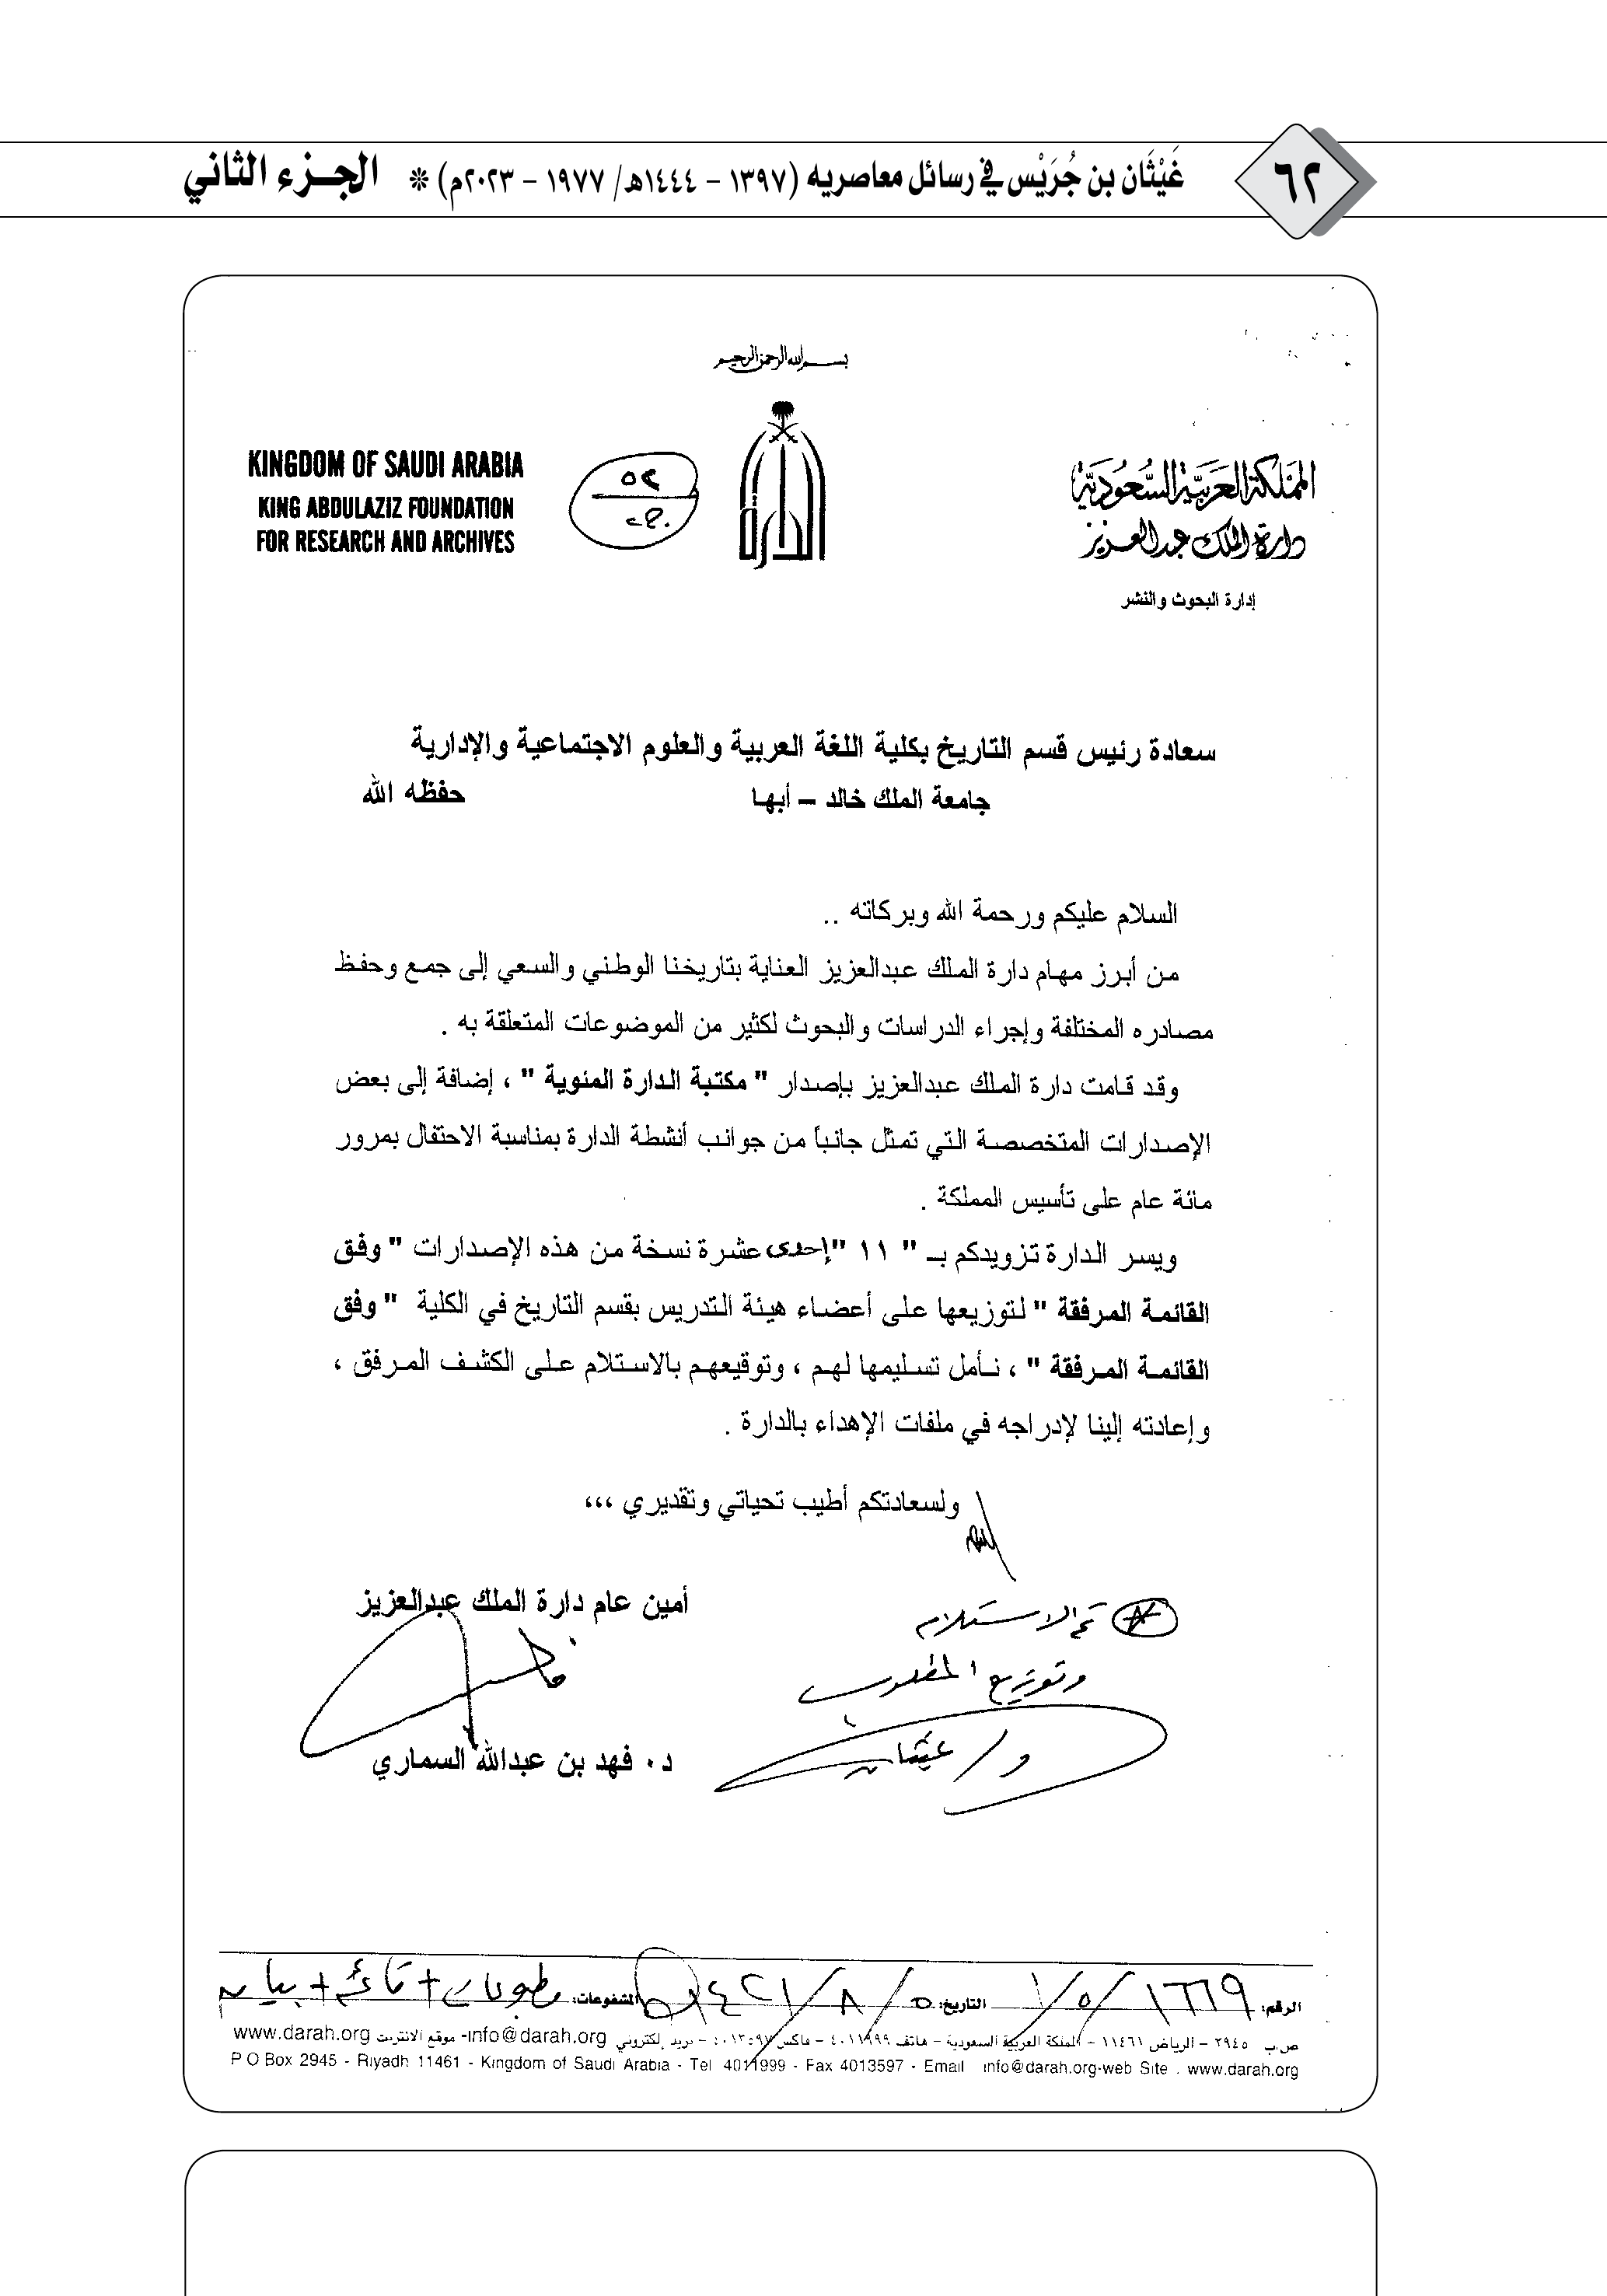 ٦٢
غَيْثَان بن جُرَيْس في رسائل معاصريه (١٣٩٧ – ١٤٤٤هـ/ ١٩٧٧ – ٢٠٢٣م) * الجـزء الثاني
بسم الله الرحمن الرحيم
المملكة العربية السعودية
دارة الملك عبدالعزيز
إدارة البحوث والنشر
الدارة
٥٢
KINGDOM OF SAUDI ARABIA
KING ABDULAZIZ FOUNDATION
FOR RESEARCH AND ARCHIVES
سعادة رئيس قسم التاريخ بكلية اللغة العربية والعلوم الاجتماعية والإدارية
جامعة الملك خالد – أبها حفظه الله
السلام عليكم ورحمة الله وبركاته ..
من أبرز مهام دارة الملك عبدالعزيز العناية بتاريخنا الوطني والسعي إلى جمع وحفظ
مصادره المختلفة وإجراء الدراسات والبحوث لكثير من الموضوعات المتعلقة به .
وقد قامت دارة الملك عبدالعزيز بإصدار " مكتبة الدارة المئوية " ، إضافة إلى بعض
الإصدارات المتخصصة التي تمثل جانباً من جوانب أنشطة الدارة بمناسبة الاحتفال بمرور
مائة عام على تأسيس المملكة .
ويسر الدارة تزويدكم بـ " ١١ "إحدى عشرة نسخة من هذه الإصدارات " وفق
القائمة المرفقة " لتوزيعها على أعضاء هيئة التدريس بقسم التاريخ في الكلية " وفق
القائمة المرفقة " ، نأمل تسليمها لهم ، وتوقيعهم بالاستلام على الكشف المرفق ،
وإعادته إلينا لإدراجه في ملفات الإهداء بالدارة .
ولسعادتكم أطيب تحياتي وتقديري ،،،
أمين عام دارة الملك عبدالعزيز
د. فهد بن عبدالله السماري
تم الاستلام
وتوزيع المطلوب
د/ غيثان
الرقم: ١٦٦٩/٥/١ التاريخ: ٥/٨/١٤٢١ المشفوعات: مطبوعات + قائمة + بيان
ص.ب ٢٩٤٥ – الرياض ١١٤٦١ – المملكة العربية السعودية – هاتف ٤٠١١٩٩٩ – فاكس ٤٠١٣٥٩٧ – بريد إلكتروني info@darah.org- موقع الانترنت www.darah.org
P O Box 2945 - Riyadh 11461 - Kingdom of Saudi Arabia - Tel 4011999 - Fax 4013597 - Email info@darah.org-web Site . www.darah.org